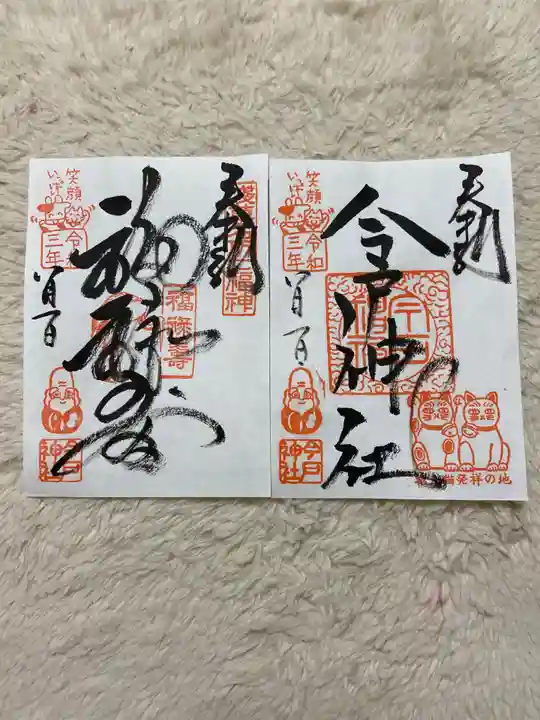 奉拝
今戸神社
笑顔
いっぱい
令和
三年
八月一日
今戸
神社
招き猫発祥の地
奉拝
福禄寿
福禄寿
笑顔
いっぱい
令和
三年
八月一日
今戸
神社
福神